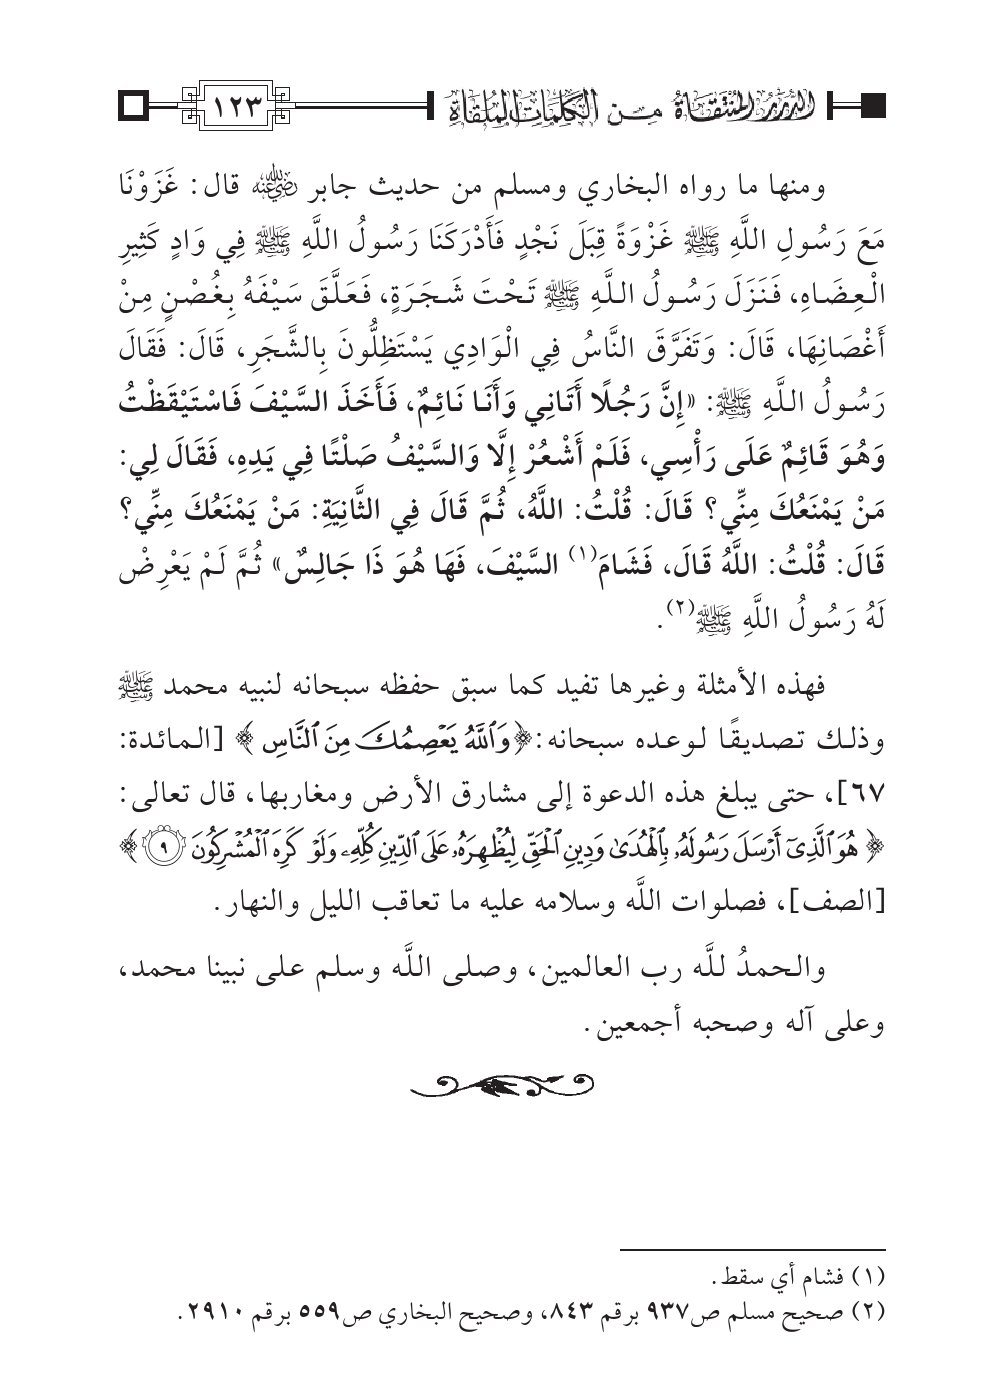 الدرر المنتقاة من الكلمات الملقاة
١٢٣
ومنها ما رواه البخاري ومسلم من حديث جابر رضي الله عنه قال: غَزَوْنَا
مَعَ رَسُولِ اللَّهِ ﷺ غَزْوَةً قِبَلَ نَجْدٍ فَأَدْرَكَنَا رَسُولُ اللَّهِ ﷺ فِي وَادٍ كَثِيرِ
الْعِضَاهِ، فَنَزَلَ رَسُولُ اللَّهِ ﷺ تَحْتَ شَجَرَةٍ، فَعَلَّقَ سَيْفَهُ بِغُصْنٍ مِنْ
أَغْصَانِهَا، قَالَ: وَتَفَرَّقَ النَّاسُ فِي الْوَادِي يَسْتَظِلُّونَ بِالشَّجَرِ، قَالَ: فَقَالَ
رَسُولُ اللَّهِ ﷺ: «إِنَّ رَجُلًا أَتَانِي وَأَنَا نَائِمٌ، فَأَخَذَ السَّيْفَ فَاسْتَيْقَظْتُ
وَهُوَ قَائِمٌ عَلَى رَأْسِي، فَلَمْ أَشْعُرْ إِلَّا وَالسَّيْفُ صَلْتًا فِي يَدِهِ، فَقَالَ لِي:
مَنْ يَمْنَعُكَ مِنِّي؟ قَالَ: قُلْتُ: اللَّهُ، ثُمَّ قَالَ فِي الثَّانِيَةِ: مَنْ يَمْنَعُكَ مِنِّي؟
قَالَ: قُلْتُ: اللَّهُ قَالَ، فَشَامَ(١) السَّيْفَ، فَهَا هُوَ ذَا جَالِسٌ» ثُمَّ لَمْ يَعْرِضْ
لَهُ رَسُولُ اللَّهِ ﷺ(٢).
فهذه الأمثلة وغيرها تفيد كما سبق حفظه سبحانه لنبيه محمد ﷺ
وذلك تصديقًا لوعده سبحانه: ﴿وَٱللَّهُ يَعْصِمُكَ مِنَ ٱلنَّاسِ﴾ [المائدة:
٦٧]، حتى يبلغ هذه الدعوة إلى مشارق الأرض ومغاربها، قال تعالى:
﴿هُوَ ٱلَّذِىٓ أَرْسَلَ رَسُولَهُۥ بِٱلْهُدَىٰ وَدِينِ ٱلْحَقِّ لِيُظْهِرَهُۥ عَلَى ٱلدِّينِ كُلِّهِۦ وَلَوْ كَرِهَ ٱلْمُشْرِكُونَ ٩﴾
[الصف]، فصلوات اللَّه وسلامه عليه ما تعاقب الليل والنهار.
والحمدُ للَّه رب العالمين، وصلى اللَّه وسلم على نبينا محمد،
وعلى آله وصحبه أجمعين.
(١) فشام أي سقط.
(٢) صحيح مسلم ص٩٣٧ برقم ٨٤٣، وصحيح البخاري ص٥٥٩ برقم ٢٩١٠.